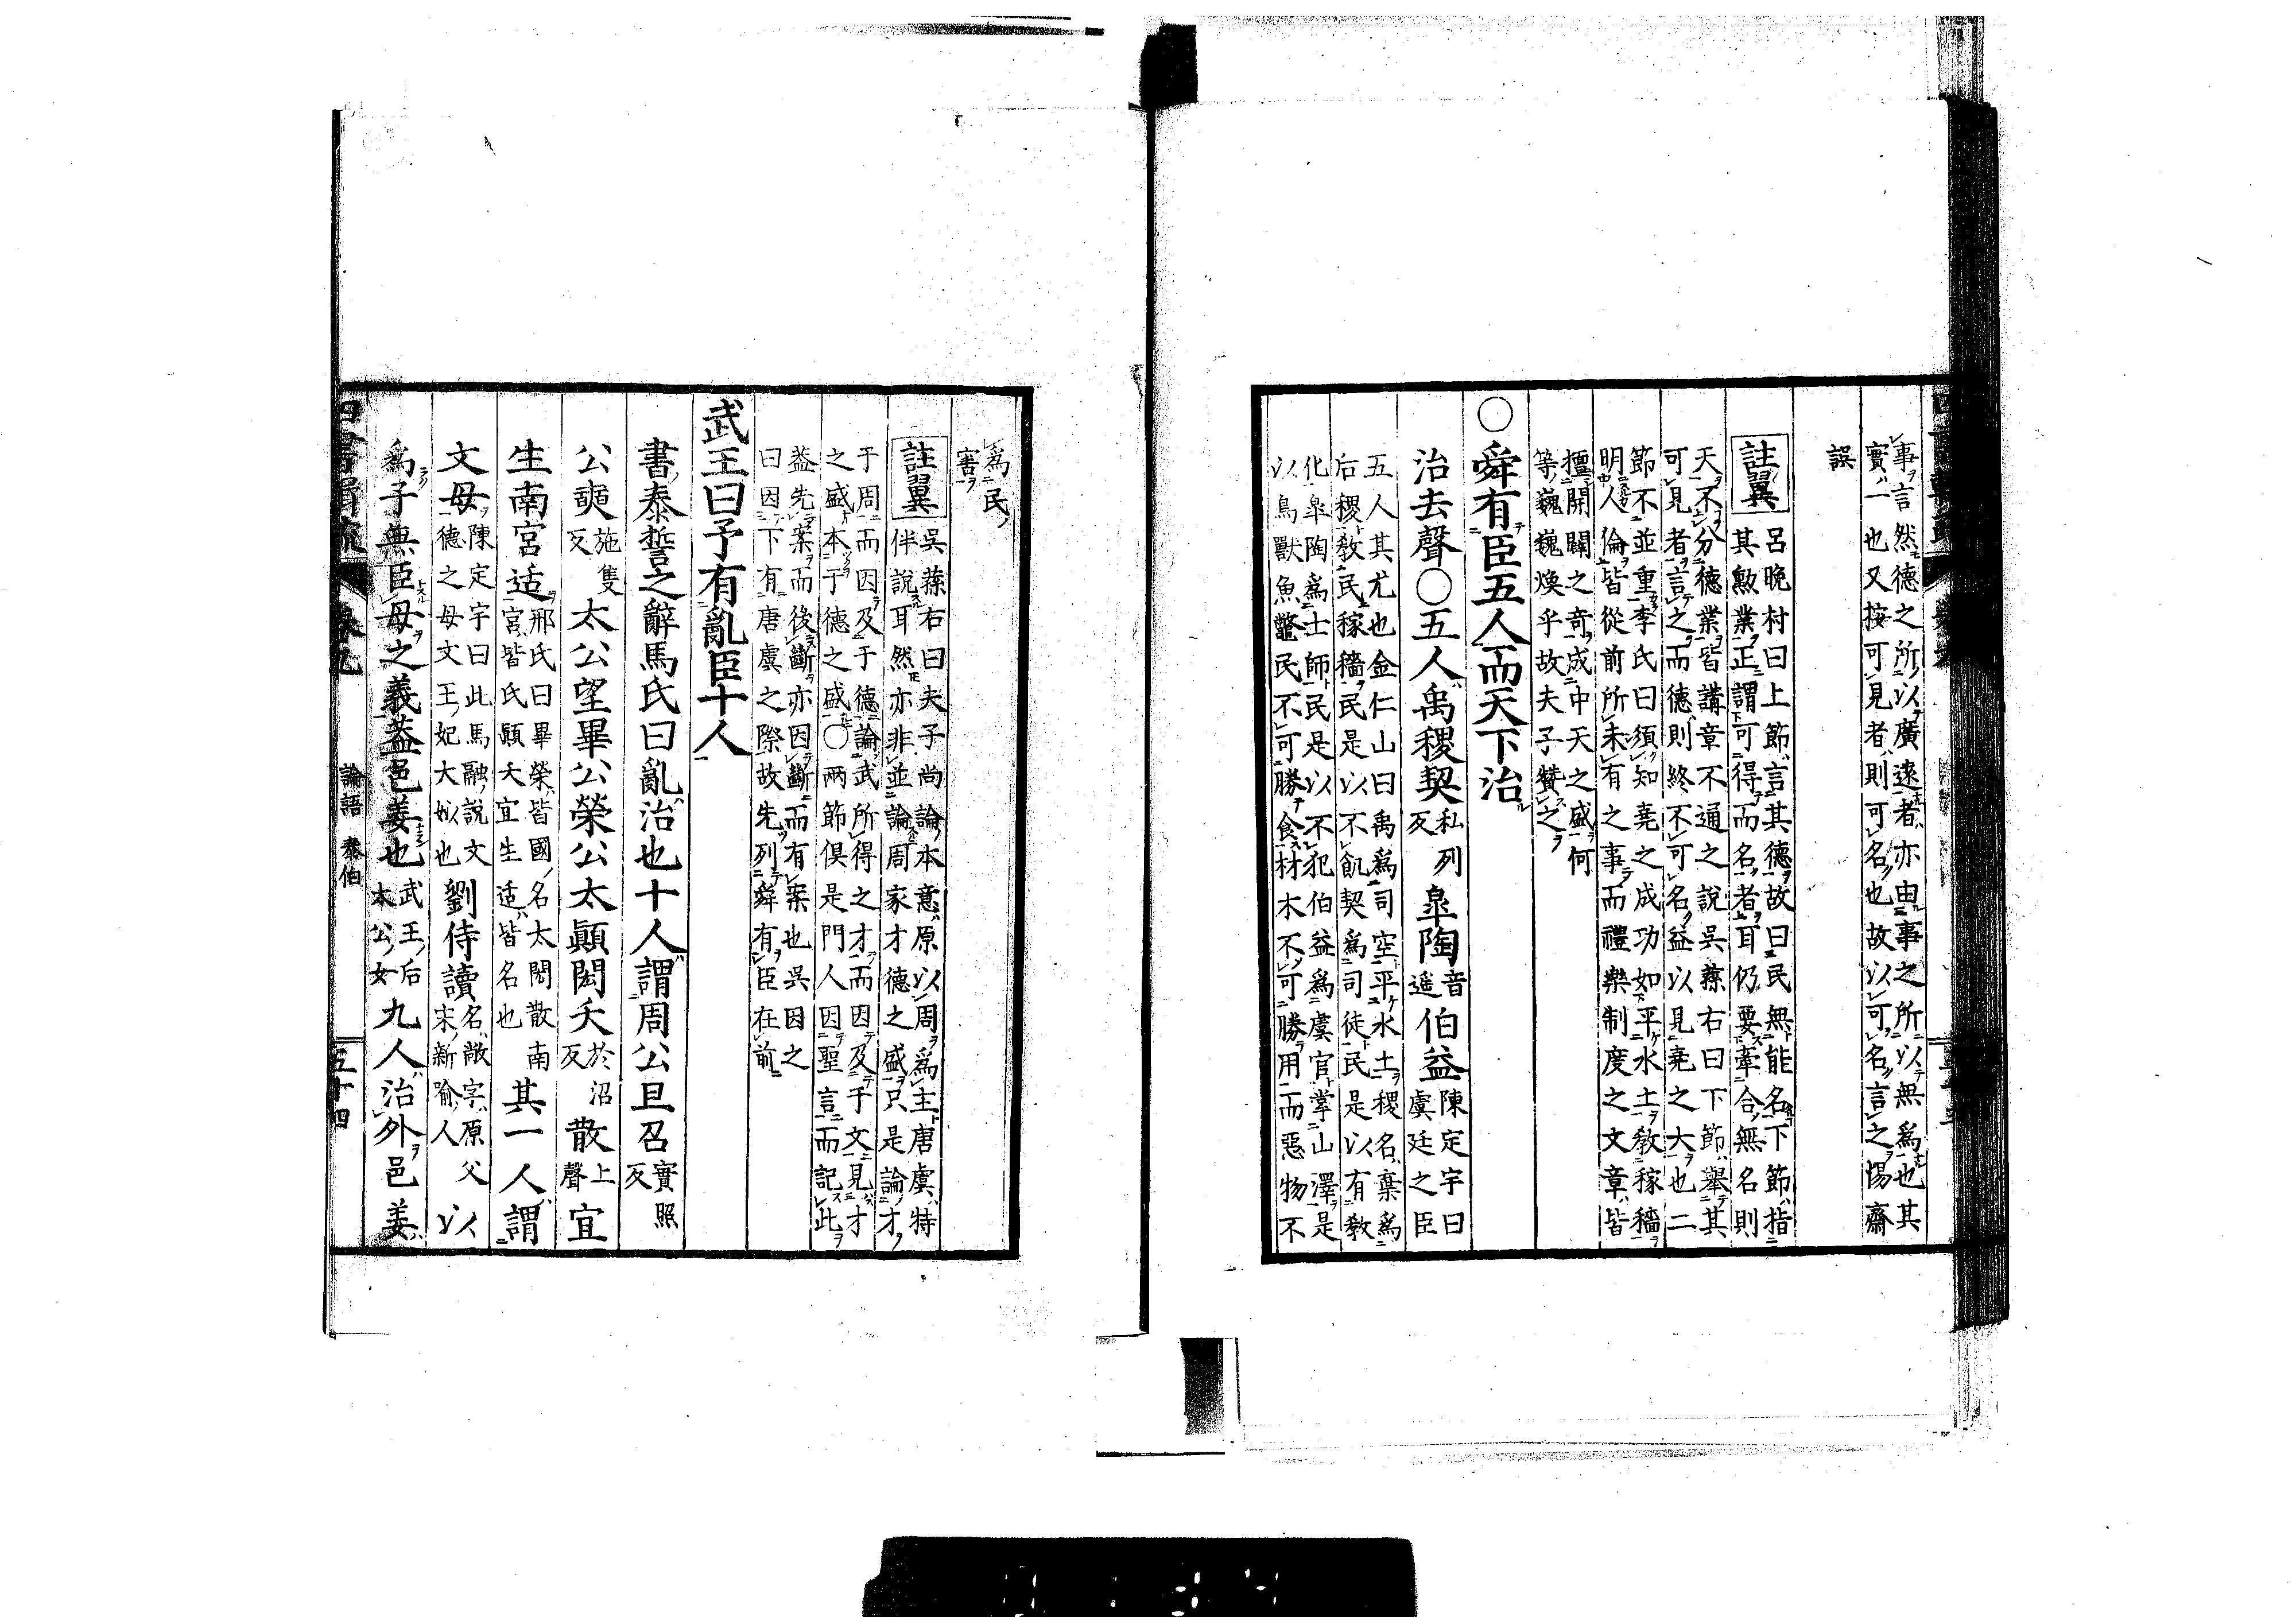 事言然德之所以廣遠者亦由事之所以無爲也其
實一也又按可見者則可名也故以可名言之惕齋
誤
註翼
呂晚村曰上節言其德故曰民無能名下節指
其勲業正謂可得而名者耳仍要牽合無名則
天不分德業皆講章不通之說吳蓀右曰下節舉其
可見者言之而德則終不可名益以見堯之大也二
節不並重李氏曰須知堯之成功如平水土敎稼穡
明人倫皆從前所未有之事而禮樂制度之文章皆
擅開闢之奇成中天之盛何
等巍巍煥乎故夫子贊之
○舜有臣五人而天下治
治去聲○五人禹稷契私列反皐陶音遥伯益陳定宇曰虞廷之臣
五人其尤也金仁山曰禹爲司空平水土稷名棄爲
后稷敎民稼穡民是以不飢契爲司徒民是以有敎
化皐陶爲士師民是以不犯伯益爲虞官掌山澤是
以鳥獸魚鼈民不可勝食材木不可勝用而惡物不
爲民
害
註翼
吳蓀右曰夫子尚論本意原以周爲主唐虞特
伴說耳然亦非並論周家才德之盛只是論才
于周而因及于德論武所得之才而因及于文見才
之盛本于德之盛○兩節俱是門人因聖言而記此
益先案而後斷亦因斷而有案也吳因之
曰因下有唐虞之際故先列舜有臣在前
武王曰予有亂臣十人
書泰誓之辭馬氏曰亂治也十人謂周公旦召實照反
公奭施隻反太公望畢公榮公太顚閎夭於沼反散上聲宜
生南宮适邢氏曰畢榮皆國名太閎散南宮皆氏顚夭宜生适皆名也其一人謂
文母陳定宇曰此馬融說文德之母文王妃大姒也劉侍讀名敞字原父宋新喻人以
爲子無臣母之義蓋邑姜也武王后太公女九人治外邑姜
論語 泰伯
五十四